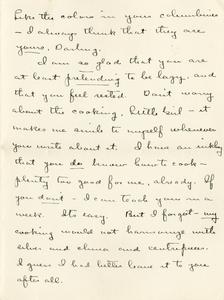 like the colors in your columbines
- I always think that they are
yours, Darling.
I am so glad that you are
at least pretending to be lazy, and
that you feel rested. Don't worry
about the cooking, little girl - it
makes me smile to myself whenever
you write about it. I have an inkling
that you do know how to cook -
plenty too good for me, already. If
you dont - I can teach you in a
week. Its easy. But I forgot - my
cooking would not harmonize with
silver and china and centerpieces.
I guess I had better leave it to you
after all.